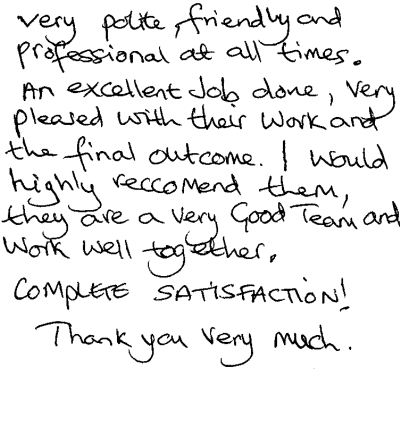 very polite, friendly and
professional at all times.
An excellent Job done, very
pleased with their work and
the final outcome. I would
highly reccomend them,
they are a very Good Team and
work well together.
COMPLETE SATISFACTION!
Thank you very much.